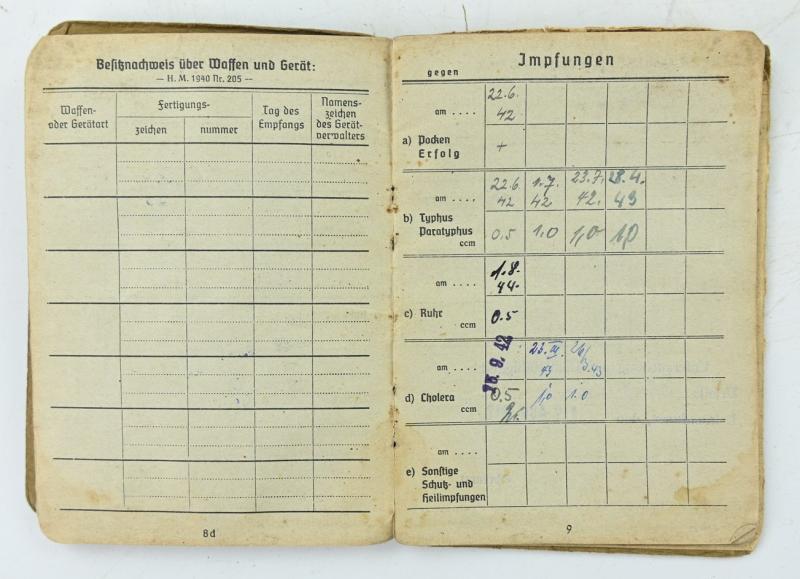 Besitznachweis über Waffen und Gerät:
— H. M. 1940 Nr. 205 —
Waffen- oder Gerätart
Fertigungs-
zeichen
nummer
Tag des Empfangs
Namens- zeichen des Gerät- verwalters
8d
Impfungen
gegen
am . . . .
22.6. 42
a) Pocken
Erfolg
+
am . . . .
22.6 42
1.7. 42
23.7. 42.
28.4. 43
b) Typhus
Paratyphus
ccm
0.5
1.0
1,0
1,0
am . . . .
1.8. 44.
c) Ruhr
ccm
0.5
am . . . .
23. III. 43
d) Cholera
ccm
0.5
1,0
1.0
am . . . .
e) Sonstige
Schutz- und
Heilimpfungen
9